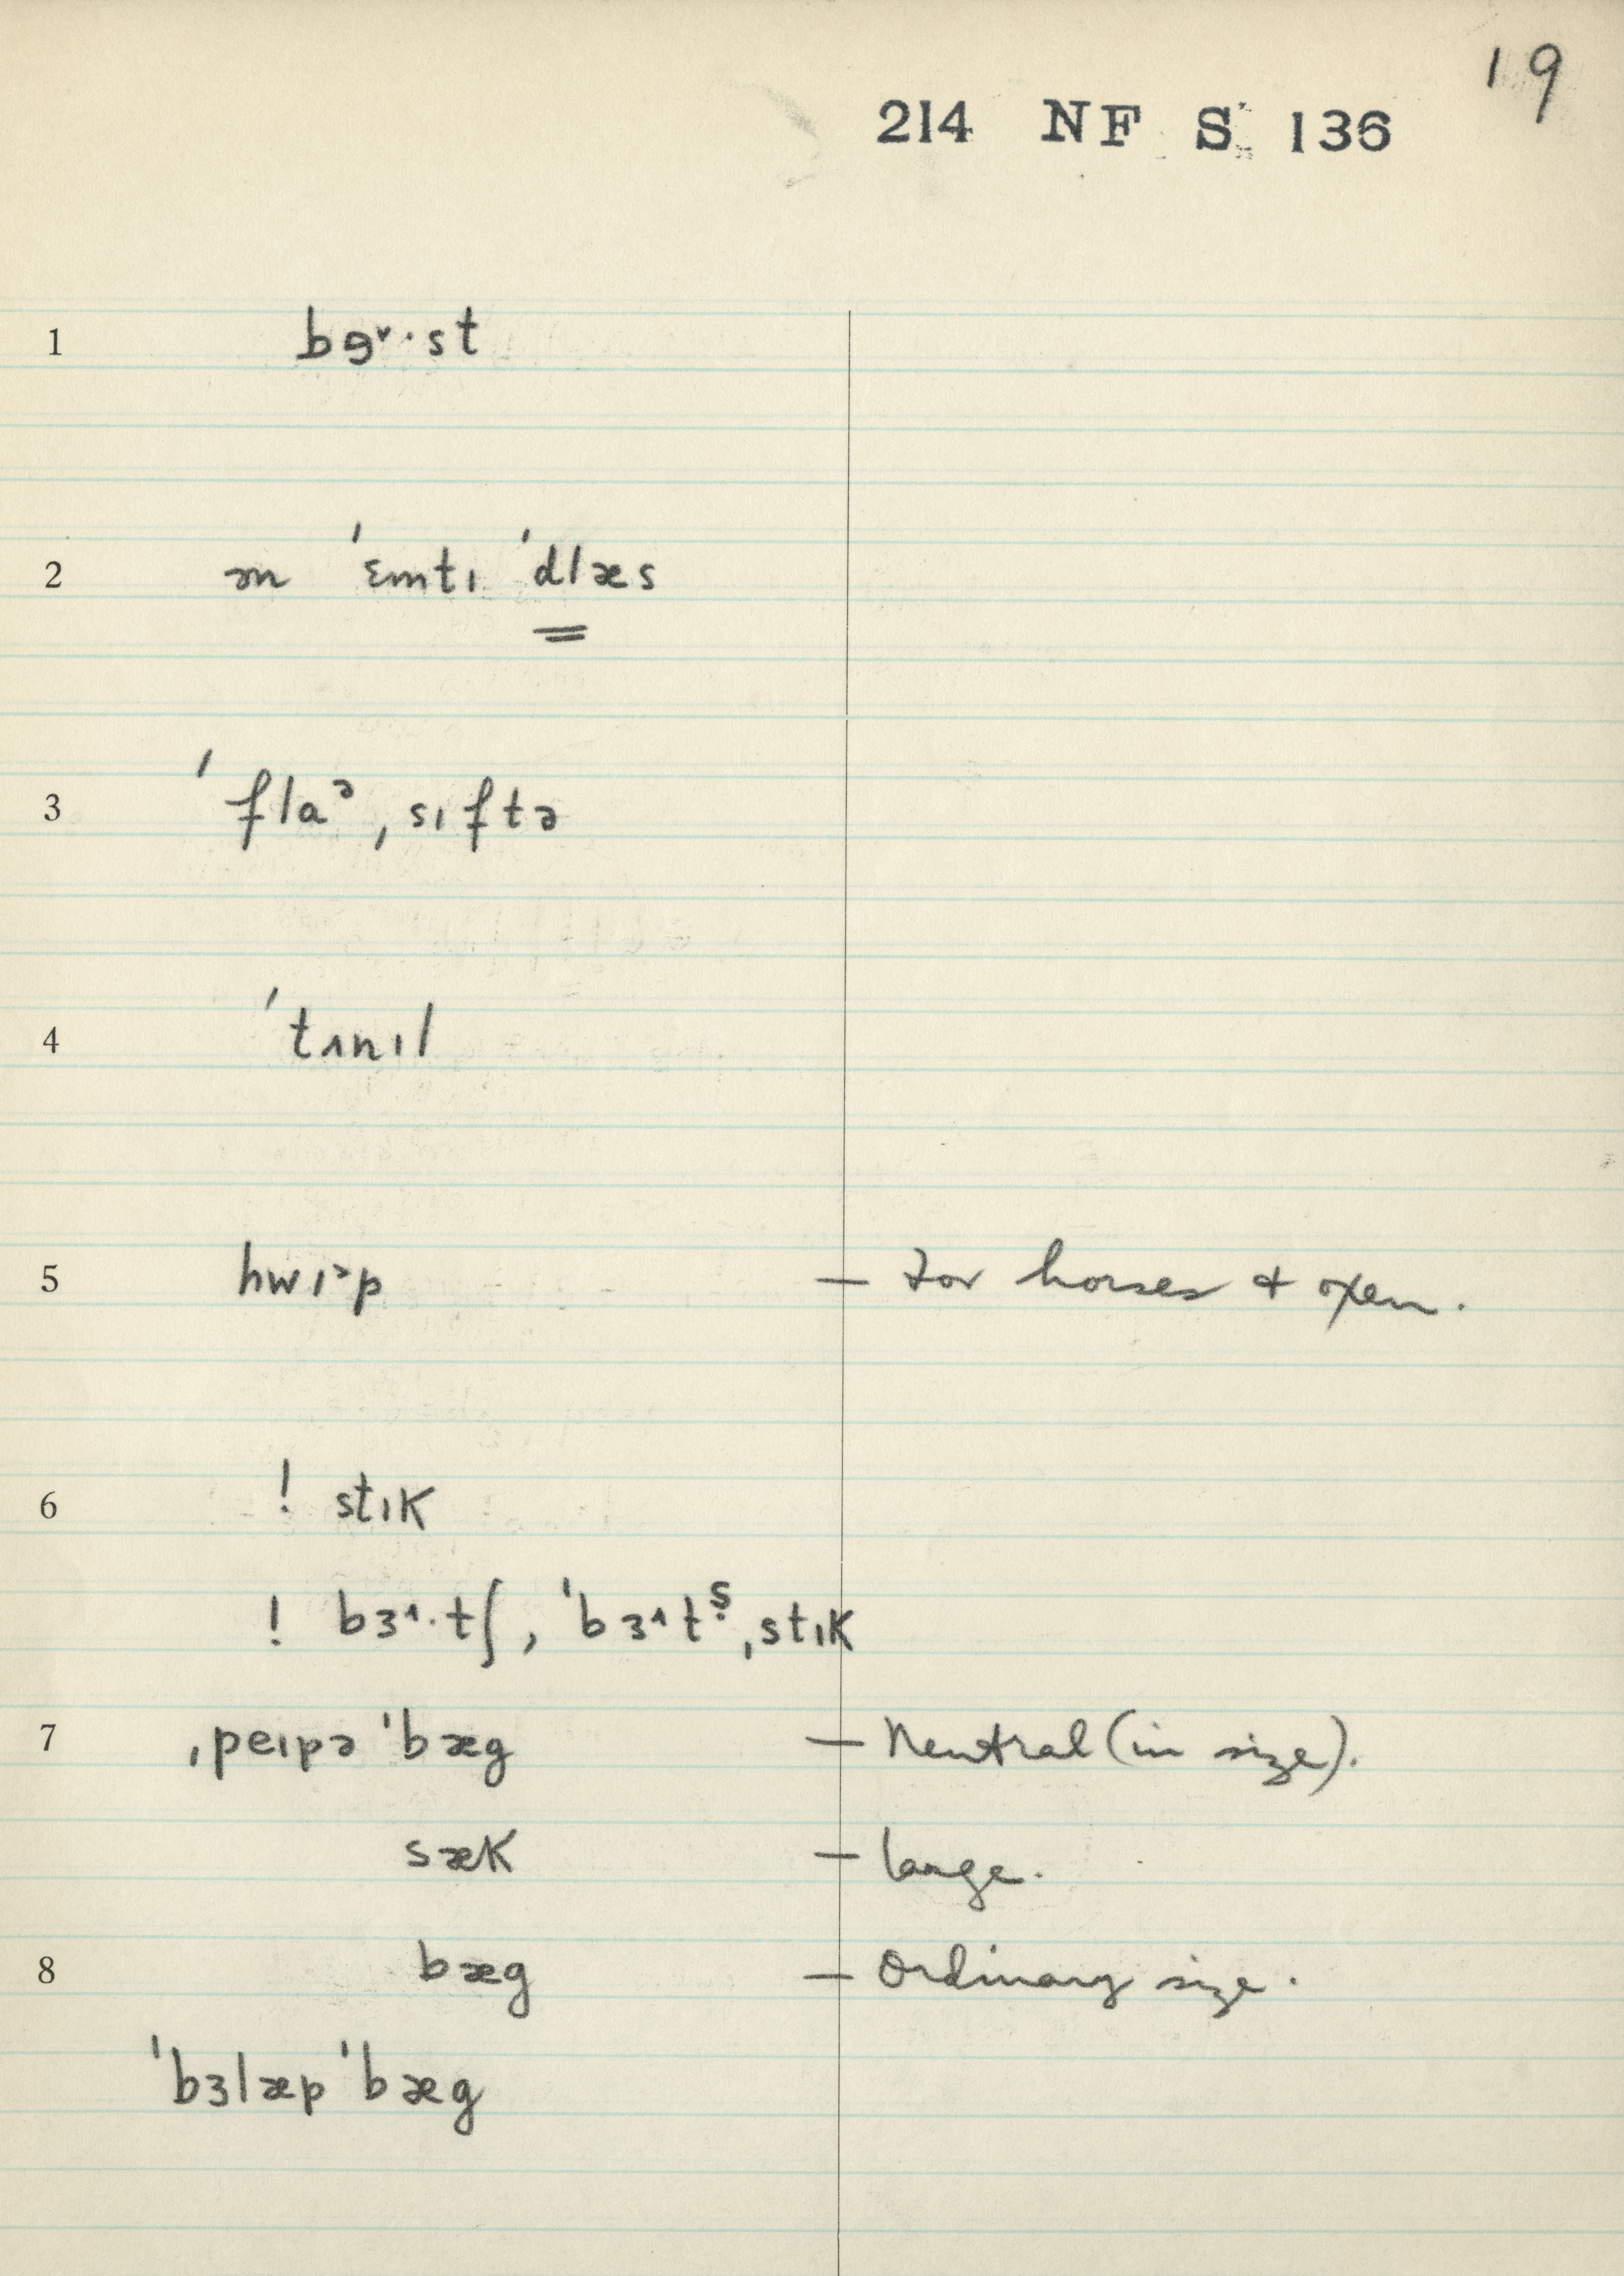 19
214 NF S 136
1 bɘ˅·st
2 ən ˈɛmtɪ ˈdlæs
3 ˈflaᵊˌsɪftə
4 ˈtʌnɪl
5 hwɪ˃p — For horses & oxen.
6 ! stɪk
! bɜ˄·tʃ, ˈbɜ˄tᶊ̣ˌstɪk
7 ˌpeɪpə ˈbæg — Neutral (in size).
sæk — large.
8 bæg — Ordinary size.
ˈbɜlæp ˈbæg